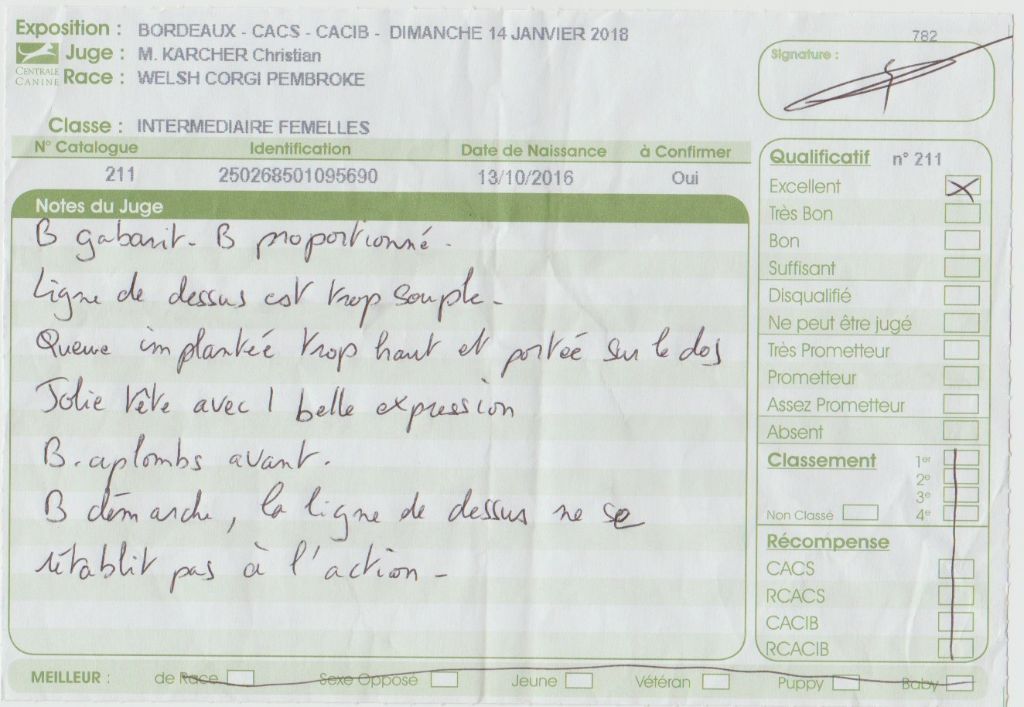 Exposition : BORDEAUX - CACS - CACIB - DIMANCHE 14 JANVIER 2018
CENTRALE CANINE
Juge : M. KARCHER Christian
Race : WELSH CORGI PEMBROKE
782
Signature :
Classe : INTERMEDIAIRE FEMELLES
N° Catalogue Identification Date de Naissance à Confirmer
211 250268501095690 13/10/2016 Oui
Notes du Juge
B gabarit. B proportionné.
Ligne de dessus est trop souple -
Queue implantée trop haut et portée sur le dos
Jolie tête avec 1 belle expression
B. aplombs avant.
B démarche, la ligne de dessus ne se
rétablit pas à l'action -
Qualificatif n° 211
Excellent
Très Bon
Bon
Suffisant
Disqualifié
Ne peut être jugé
Très Prometteur
Prometteur
Assez Prometteur
Absent
Classement 1er
2e
3e
Non Classé 4e
Récompense
CACS
RCACS
CACIB
RCACIB
MEILLEUR : de Race Sexe Opposé Jeune Vétéran Puppy Baby